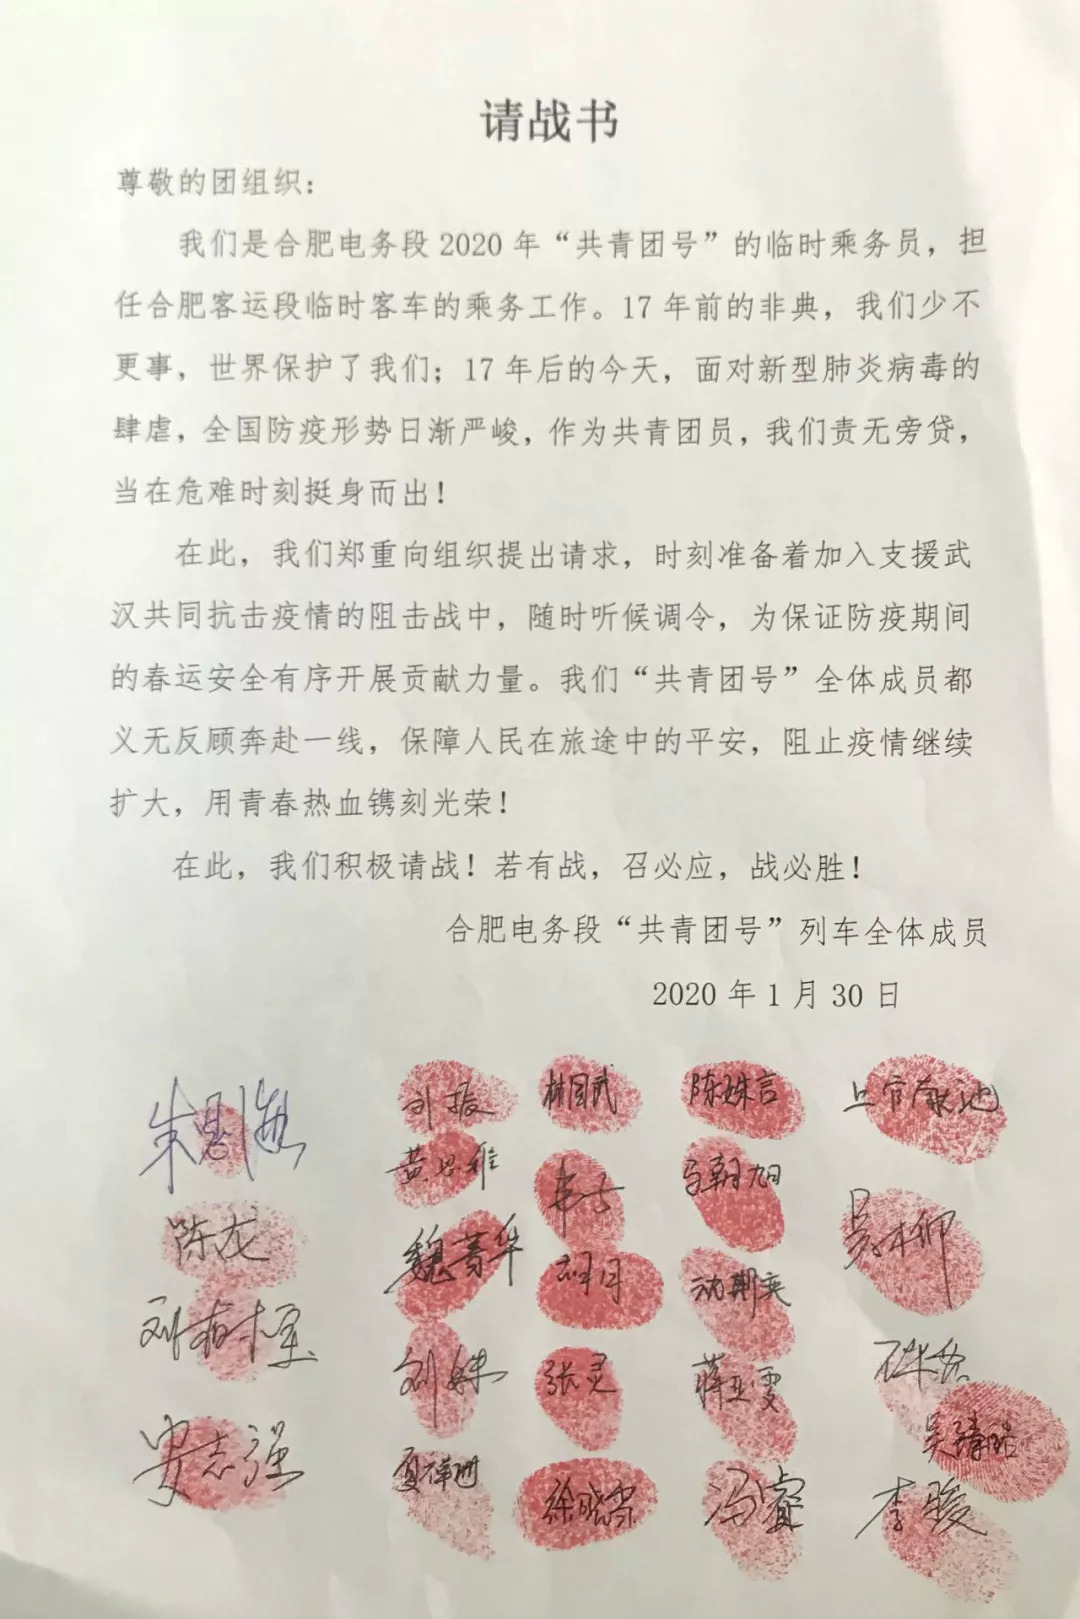 请战书
尊敬的团组织：
我们是合肥电务段 2020 年“共青团号”的临时乘务员，担
任合肥客运段临时客车的乘务工作。17 年前的非典，我们少不
更事，世界保护了我们；17 年后的今天，面对新型肺炎病毒的
肆虐，全国防疫形势日渐严峻，作为共青团员，我们责无旁贷，
当在危难时刻挺身而出！
在此，我们郑重向组织提出请求，时刻准备着加入支援武
汉共同抗击疫情的阻击战中，随时听候调令，为保证防疫期间
的春运安全有序开展贡献力量。我们“共青团号”全体成员都
义无反顾奔赴一线，保障人民在旅途中的平安，阻止疫情继续
扩大，用青春热血镌刻光荣！
在此，我们积极请战！若有战，召必应，战必胜！
合肥电务段“共青团号”列车全体成员
2020 年 1 月 30 日
刘振
陈珠言
黄思维
马朝旭
陈龙
魏菁华
吴柳
刘姝
张灵
蒋亚雯
安志强
冯睿
李骏